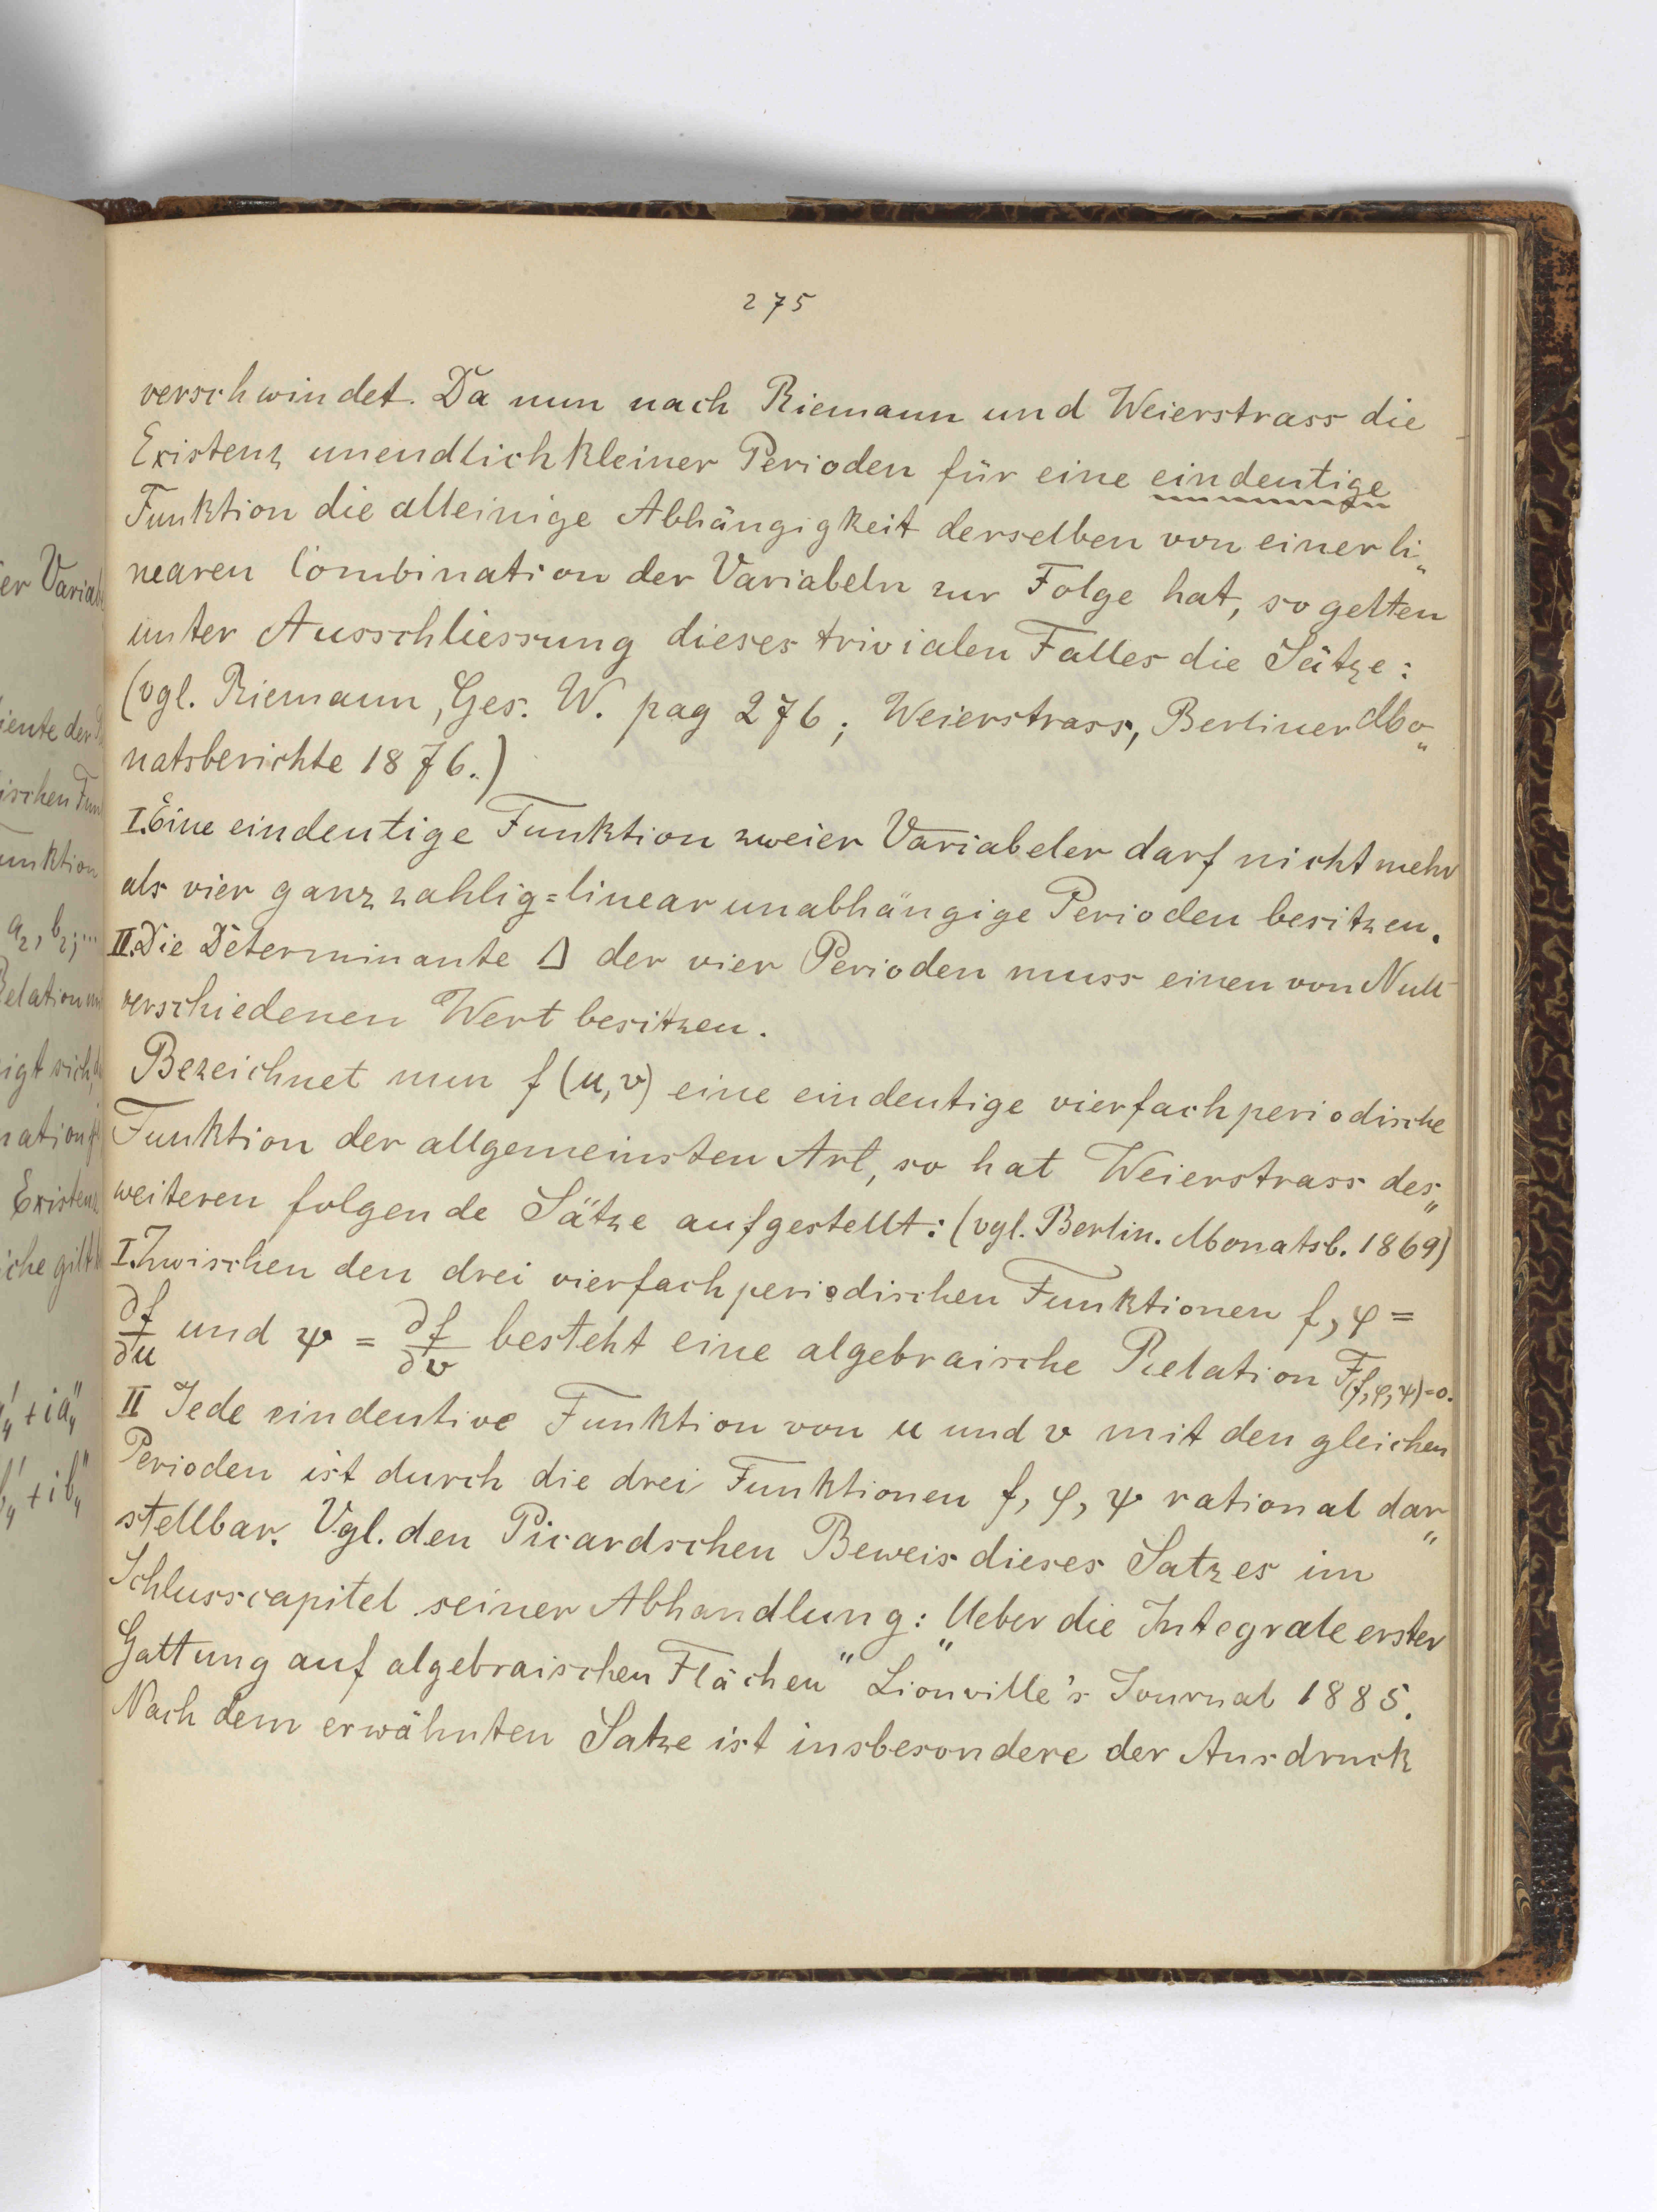 275
verschwindet. Da nun nach Riemann und Weierstrass die
Existenz unendlich kleiner Perioden für eine eindeutige
Funktion die alleinige Abhängigkeit derselben von einer li„
nearen Combination der Variabeln zur Folge hat, so gelten
unter Ausschliessung dieses trivialen Falles die Sätze:
(vgl. Riemann, Ges. W. pag 276; Weierstrass, Berliner Mo„
natsberichte 1876.)
I. Eine eindeutige Funktion zweier Variabeler darf nicht mehr
als vier ganzzahlig=linear unabhängige Perioden besitzen.
II. Die Determinante Δ der vier Perioden muss einen von Null
verschiedenen Wert besitzen.
Bezeichnet nun f(u,v) eine eindeutige vierfachperiodische
Funktion der allgemeinsten Art, so hat Weierstrass des„
weiteren folgende Sätze aufgestellt: (vgl. Berlin. Monatsb. 1869)
I. Zwischen den drei vierfachperiodischen Funktionen f, φ =
∂f/∂u und ψ = ∂f/∂v besteht eine algebraische Relation F(f,φ,ψ)=0.
II Jede eindeutive Funktion von u und v mit den gleichen
Perioden ist durch die drei Funktionen f, φ, ψ rational dar„
stellbar. Vgl. den Picardschen Beweis dieses Satzes im
Schlusscapitel seiner Abhandlung: „Ueber die Integrale erster
Gattung auf algebraischen Flächen" Liouville's Journal 1885.
Nach dem erwähnten Satze ist insbesondere der Ausdruck